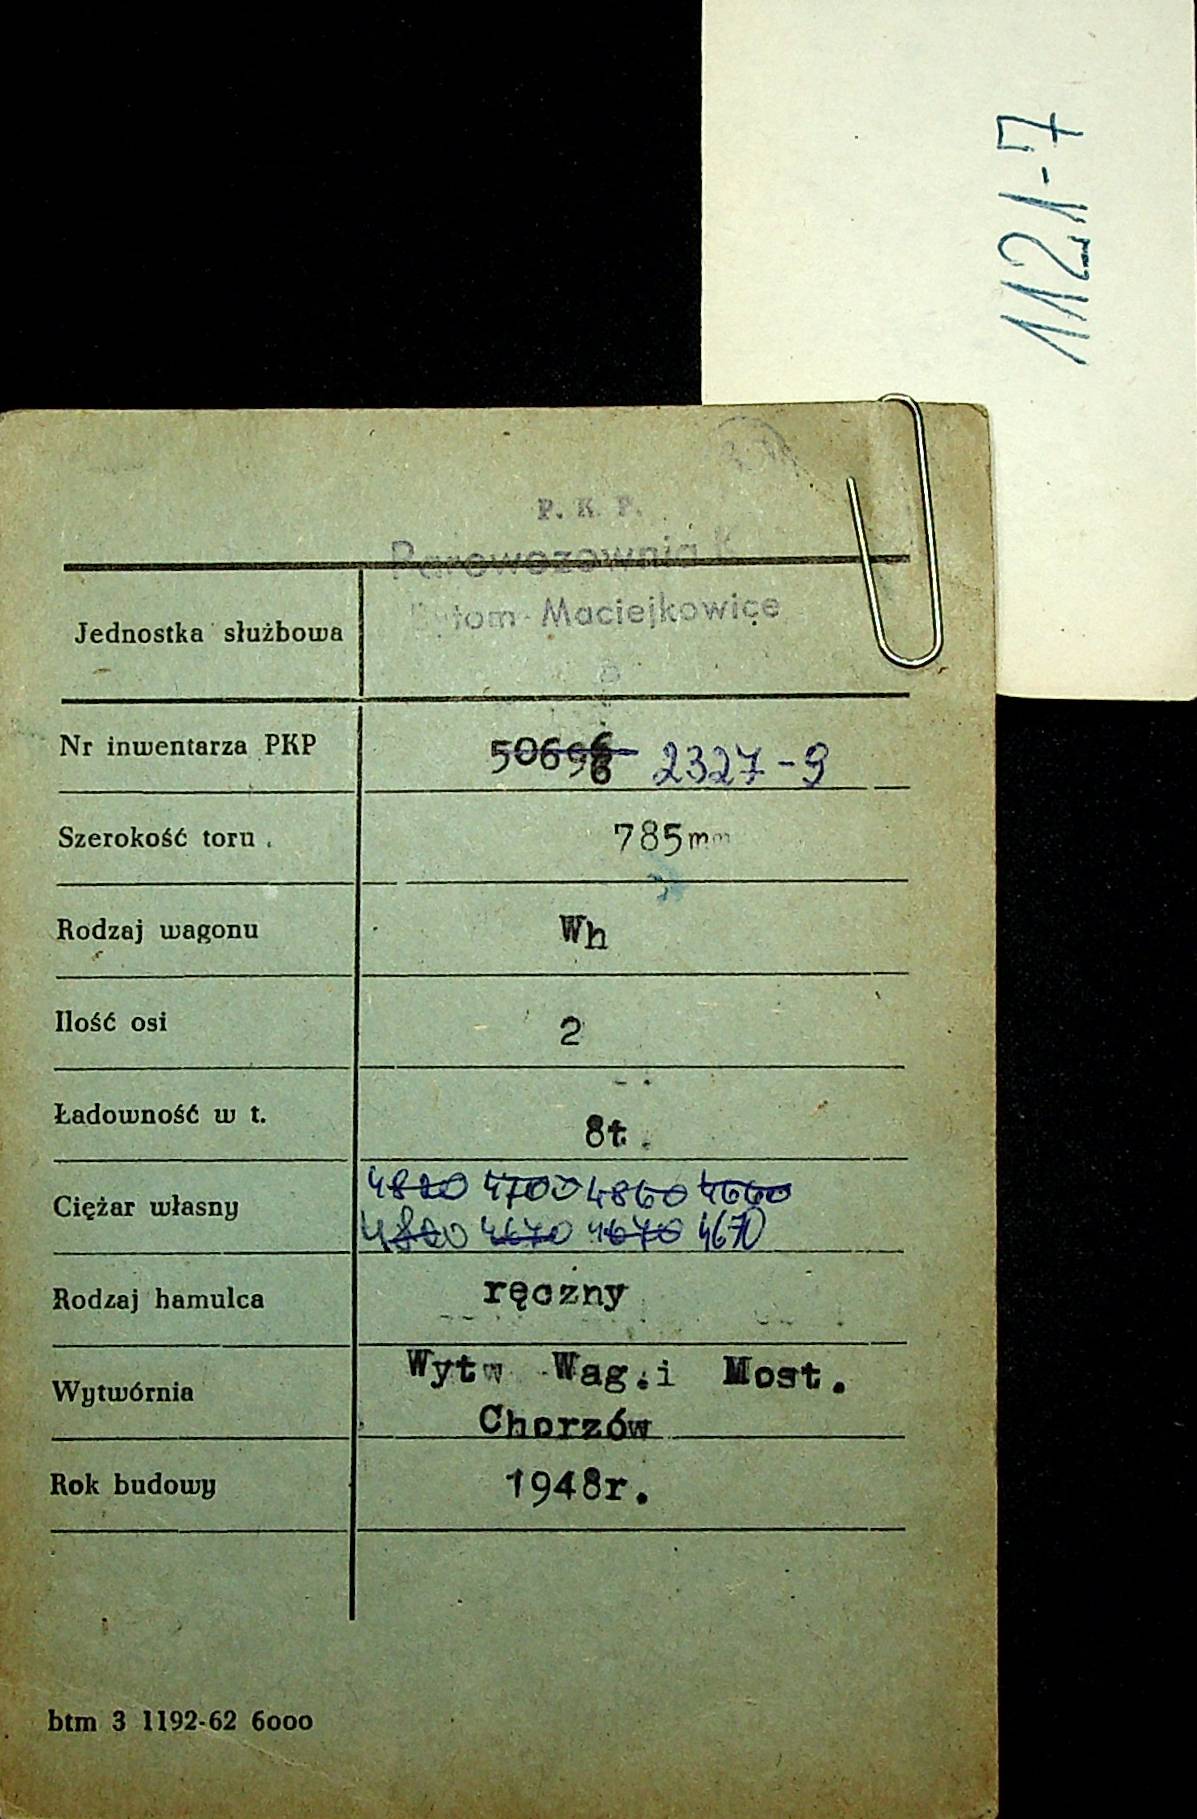 1121-7
P. K. P.
Parowozownia K
Bytom-Maciejkowice
Jednostka służbowa
Nr inwentarza PKP 50696 2327-9
Szerokość toru 785mm
Rodzaj wagonu Wh
Ilość osi 2
Ładowność w t. 8t.
4820 4700 4860 4660
Ciężar własny
4820 4670 4670 4670
Rodzaj hamulca ręczny
Wytw Wag.i Most.
Wytwórnia
Chorzów
Rok budowy 1948r.
btm 3 1192-62 6000